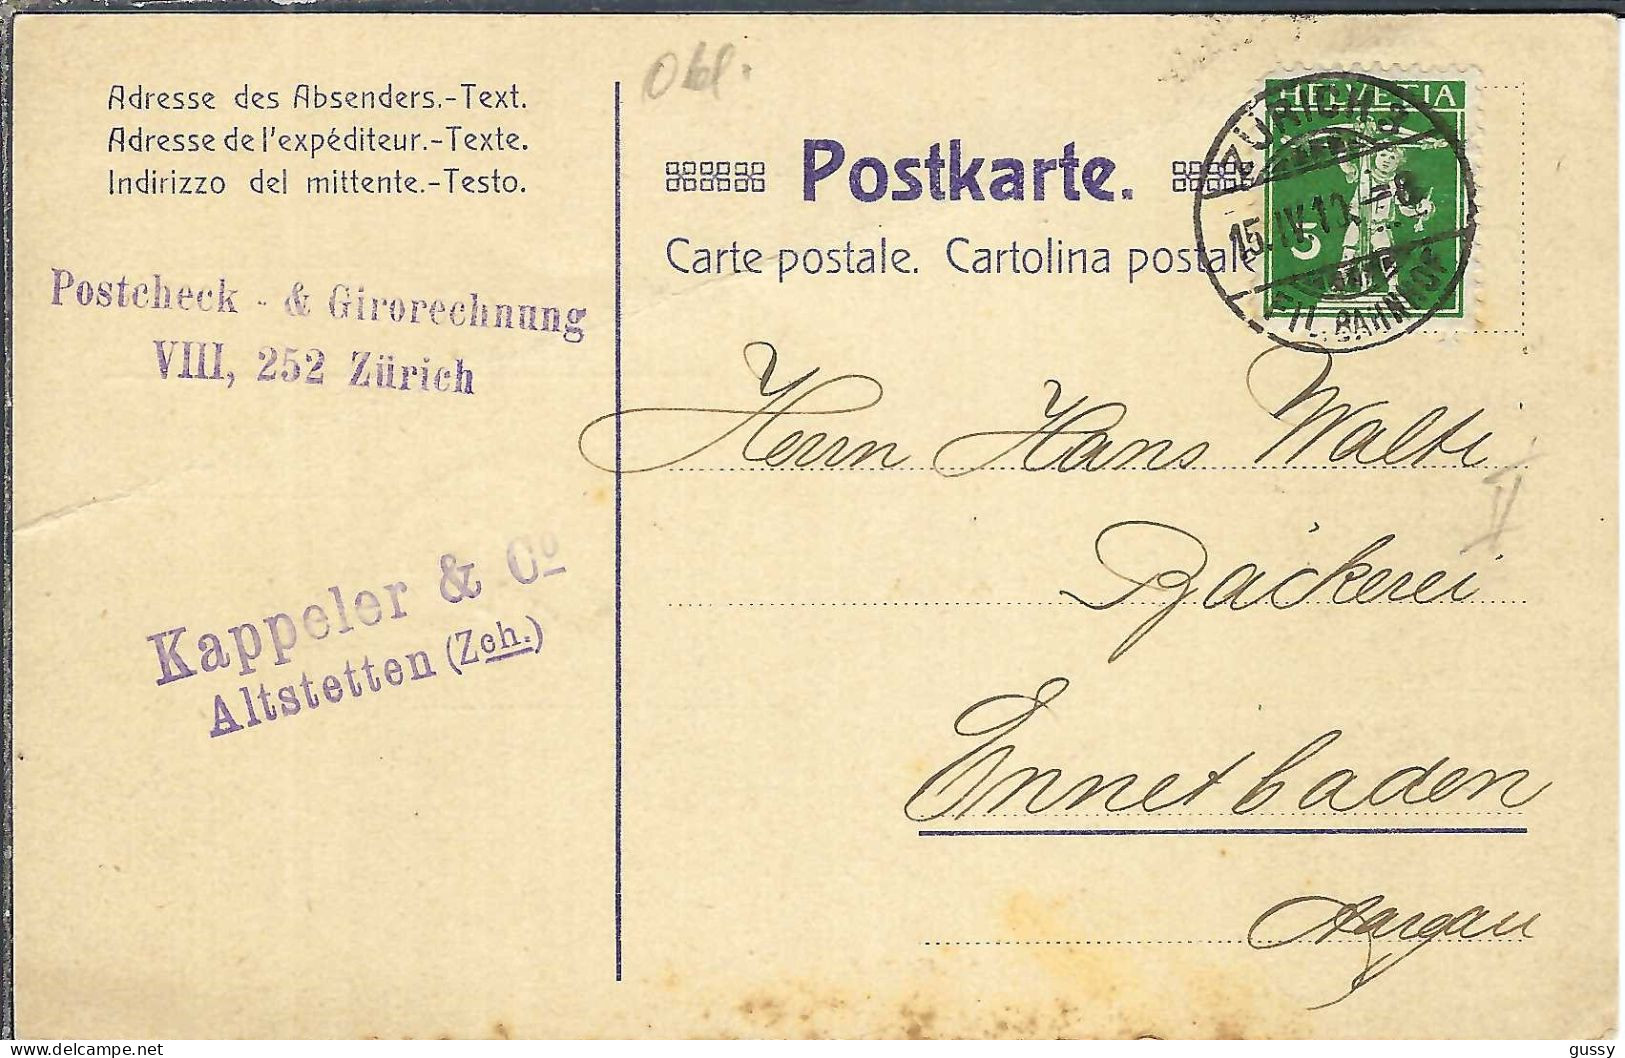 Adresse des Absenders.-Text.
Adresse de l'expéditeur.-Texte.
Indirizzo del mittente.-Testo.
Postcheck - & Girorechnung
VIII, 252 Zürich
Kappeler & Cº
Altstetten (Zch.)
Obl.
Postkarte.
Carte postale. Cartolina postale
HELVETIA
5
ZÜRICH 3
15.IV.10.-8
FIL. BAHNHOF
Herrn Hans Walti
Bäckerei
Ennetbaden
Aargau
II
gussy